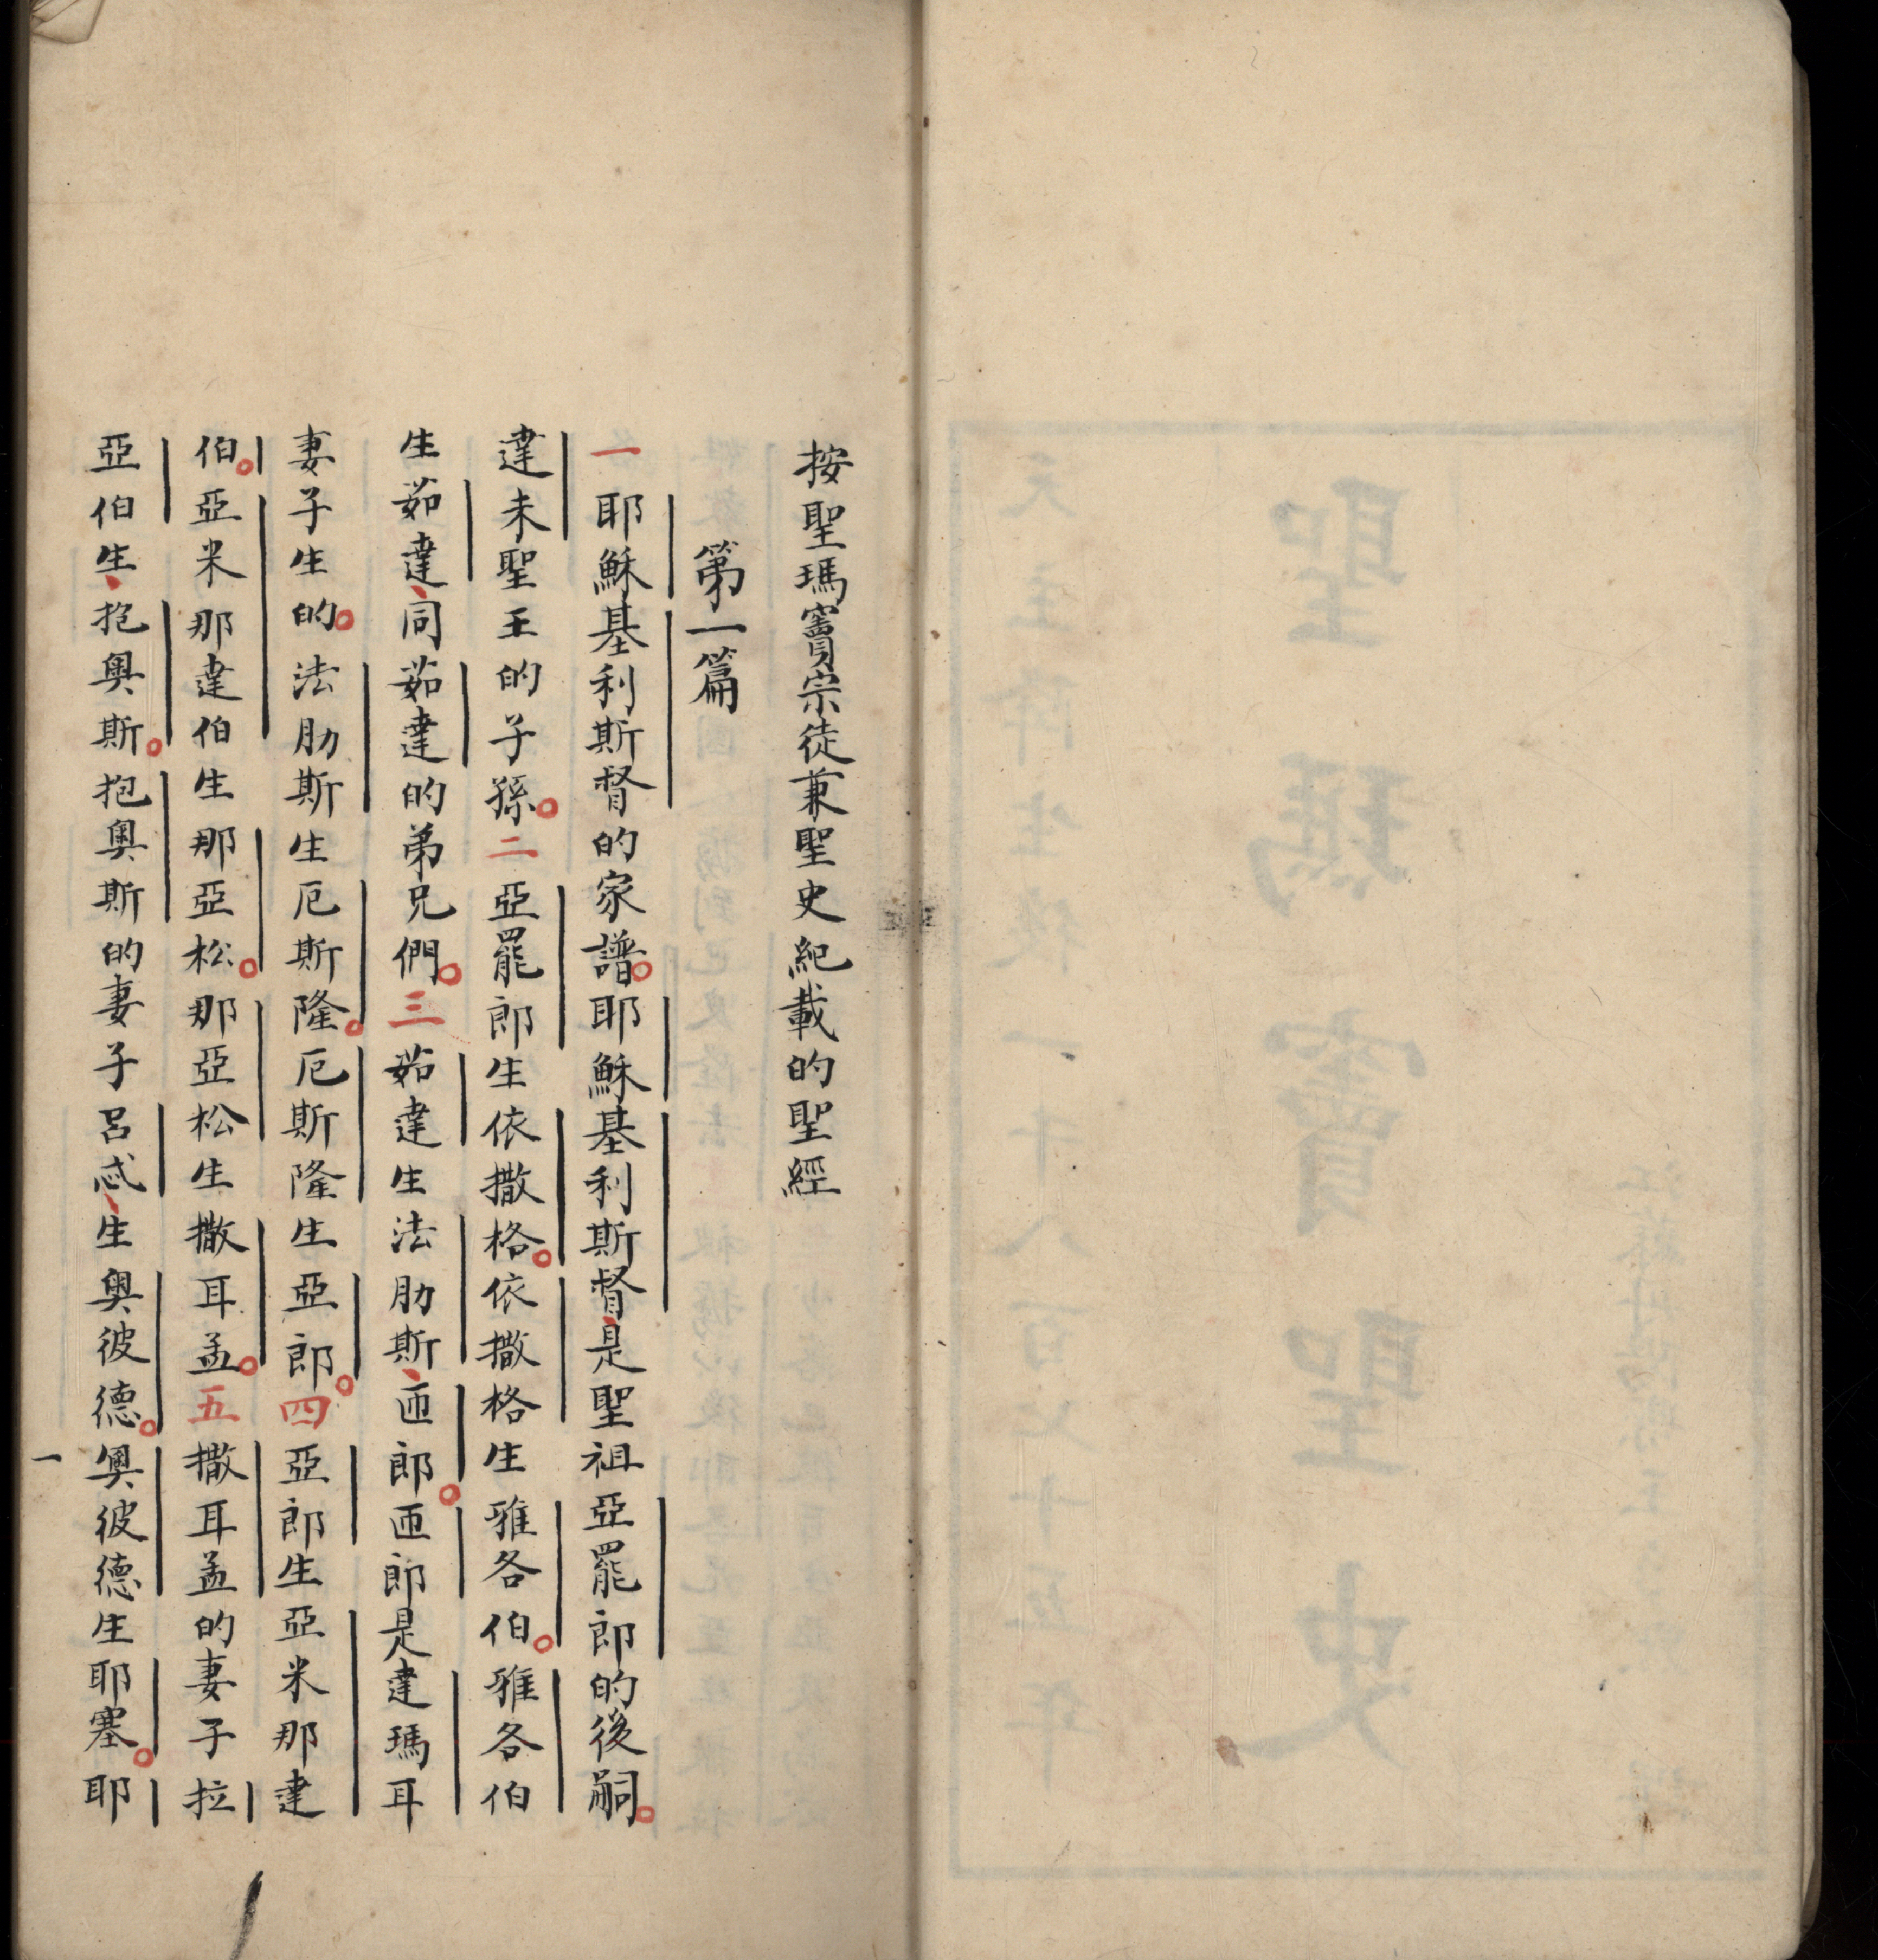 天主降生後一千八百七十五年
聖瑪竇聖史
按聖瑪竇宗徒兼聖史紀載的聖經
第一篇
一耶穌基利斯督的家譜。耶穌基利斯督、是聖祖亞罷郎的後嗣。
達未聖王的子孫。二亞罷郎生依撒格。依撒格生雅各伯。雅各伯
生茹達、同茹達的弟兄們。三茹達生法肋斯、匝郎。匝郎是達瑪耳
妻子生的。法肋斯生厄斯隆。厄斯隆生亞郎。四亞郎生亞米那達
伯。亞米那達伯生那亞松。那亞松生撒耳孟。五撒耳孟的妻子拉
亞伯生、抱奧斯。抱奧斯的妻子呂忒、生奧彼德。奧彼德生耶塞。耶
一